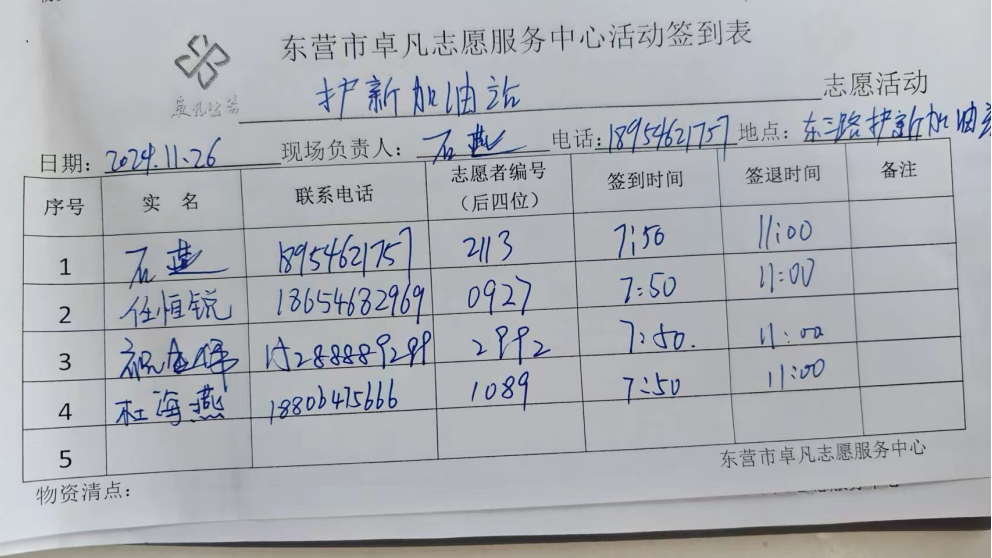 东营市卓凡志愿服务中心活动签到表
护新加油站 志愿活动
日期：2024.11.26 现场负责人：石燕 电话：18954621757 地点：东三路护新加油
序号 实 名 联系电话 志愿者编号（后四位） 签到时间 签退时间 备注
1 石燕 18954621757 2113 7:50 11:00
2 任恒锐 18654682969 0927 7:50 11:00
3 15288889299 2992 7:50. 11:00
4 杜海燕 18806475666 1089 7:50 11:00
5
东营市卓凡志愿服务中心
物资清点：